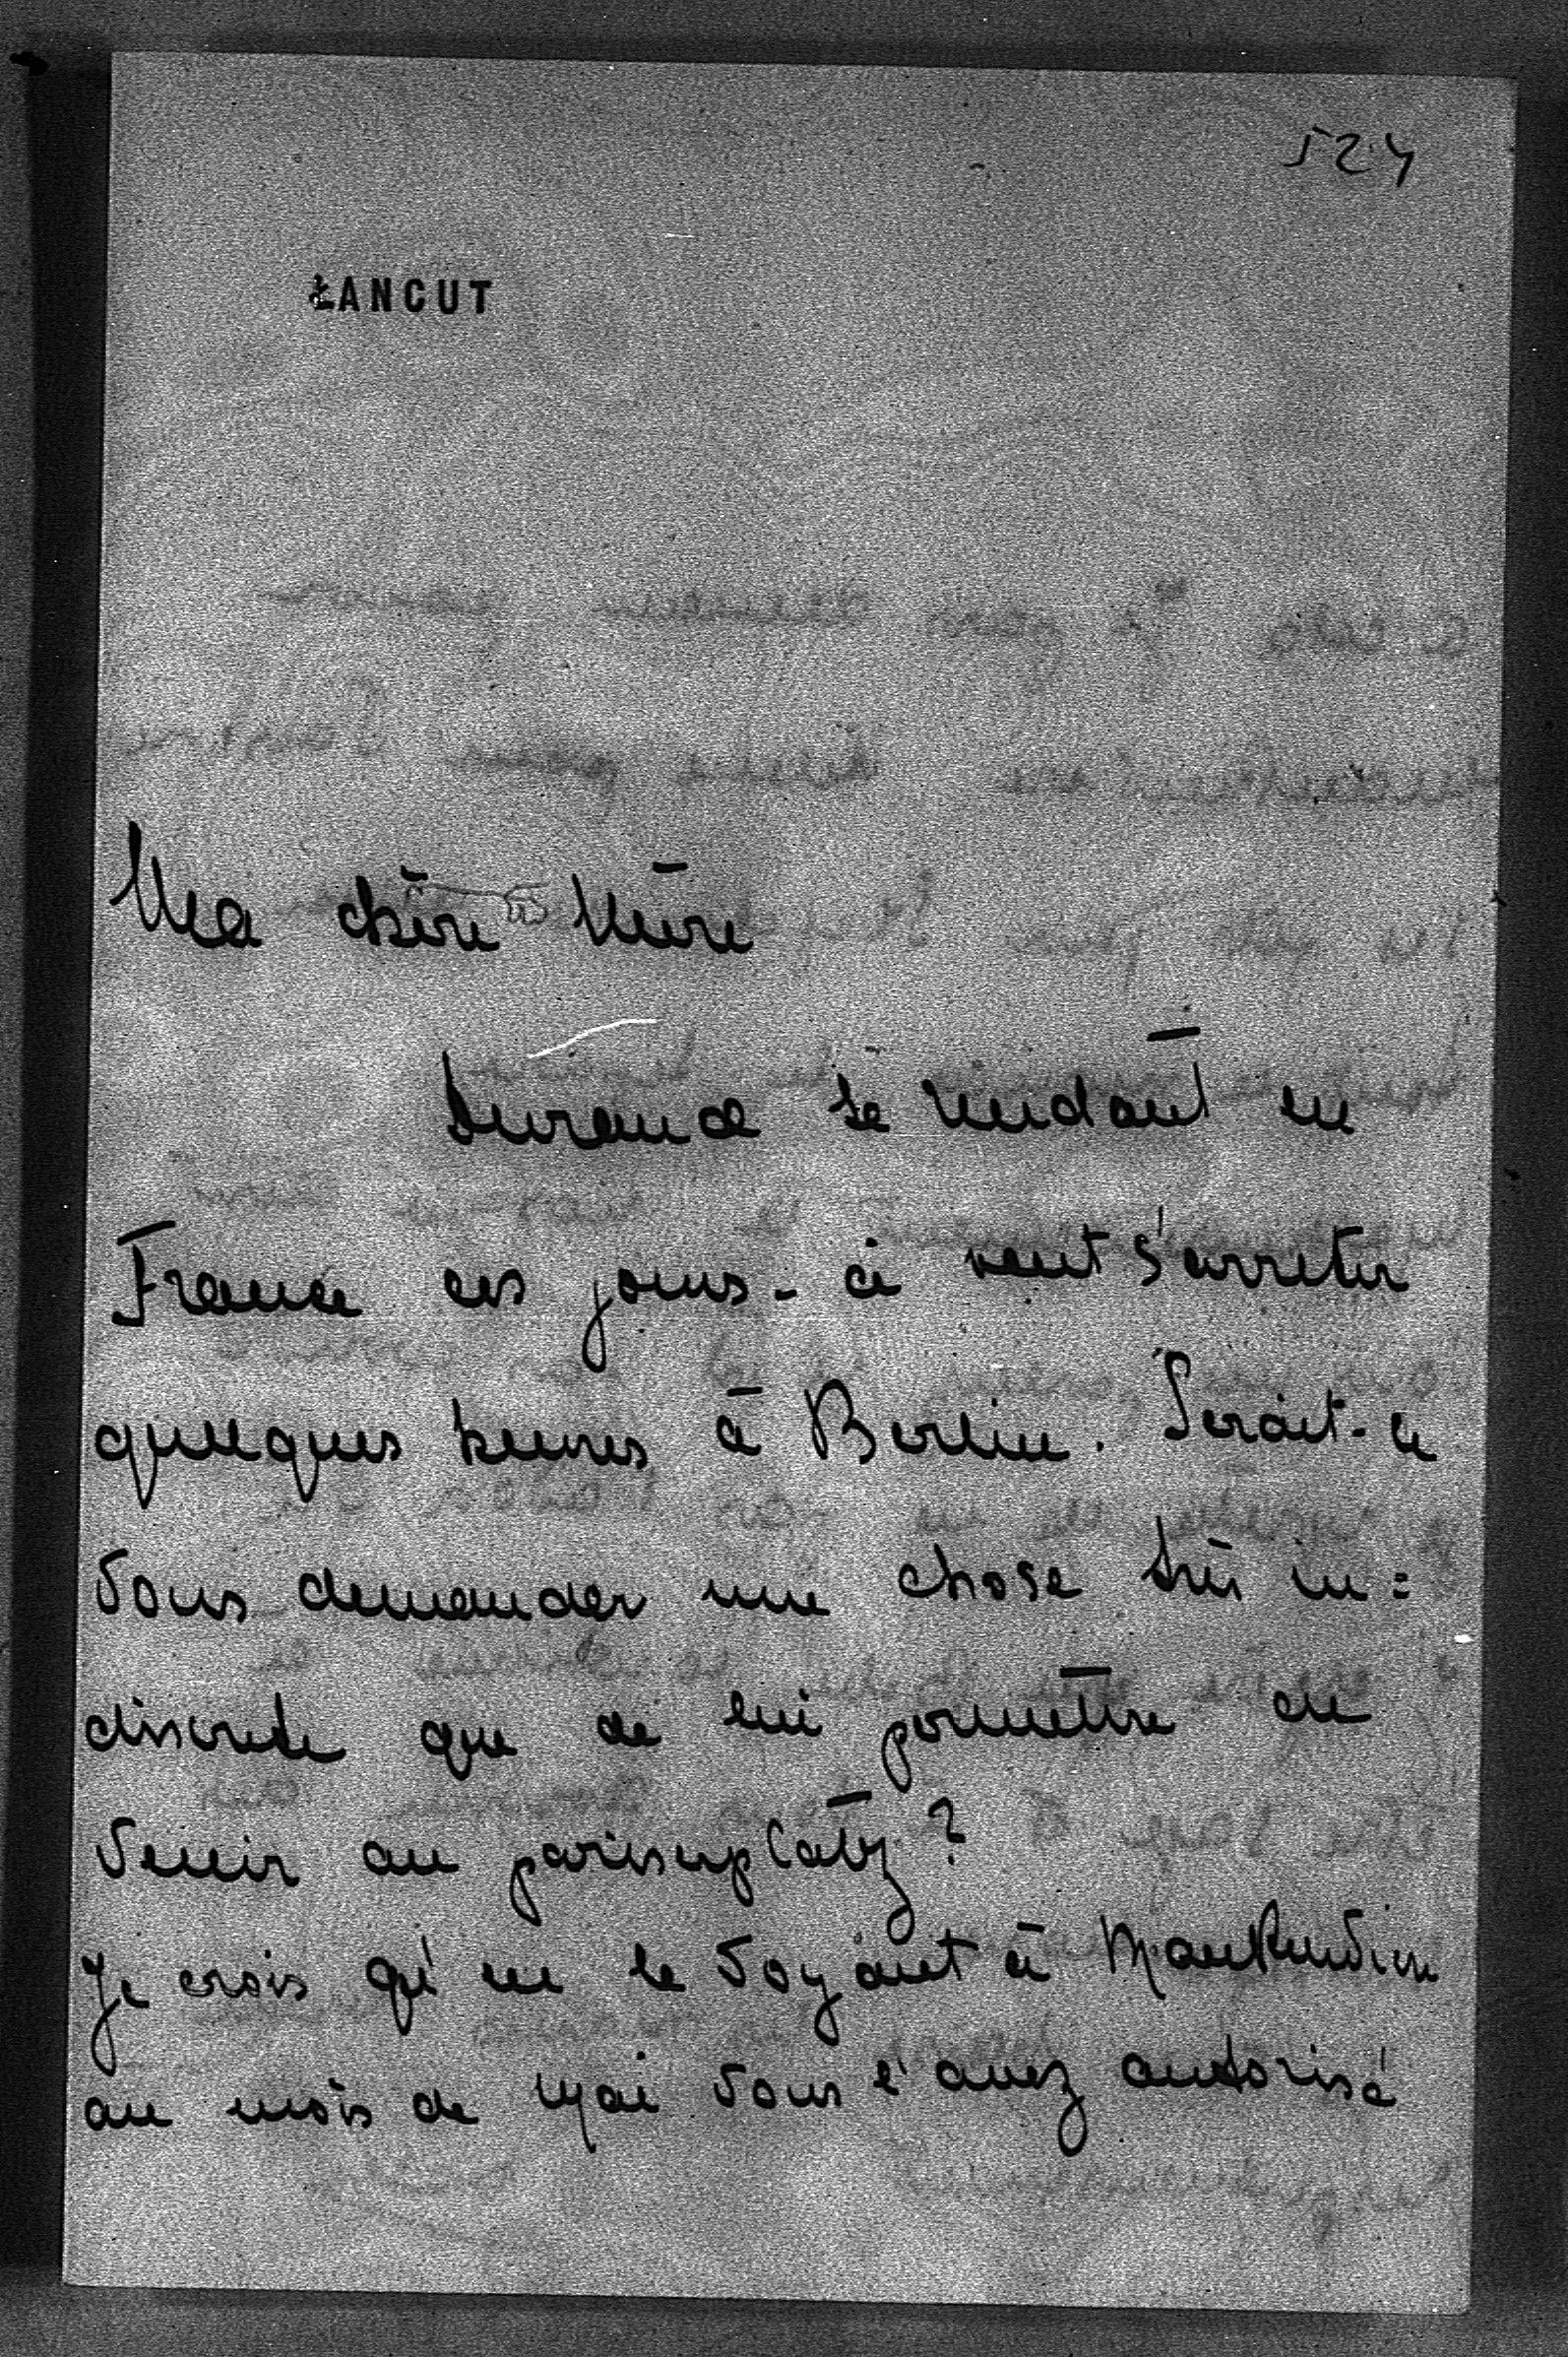 524
ŁANCUT
Ma chère Mère
Durand se rendant en
France ces jours-ci veut s'arreter
quelques heures à Berlin. Serait-ce
vous demander une chose très in=
discrete que de lui permettre de
venir au pariserplatz?
Je crois qu'en le voyant à
au mois de Mai vous l'avez autorisé